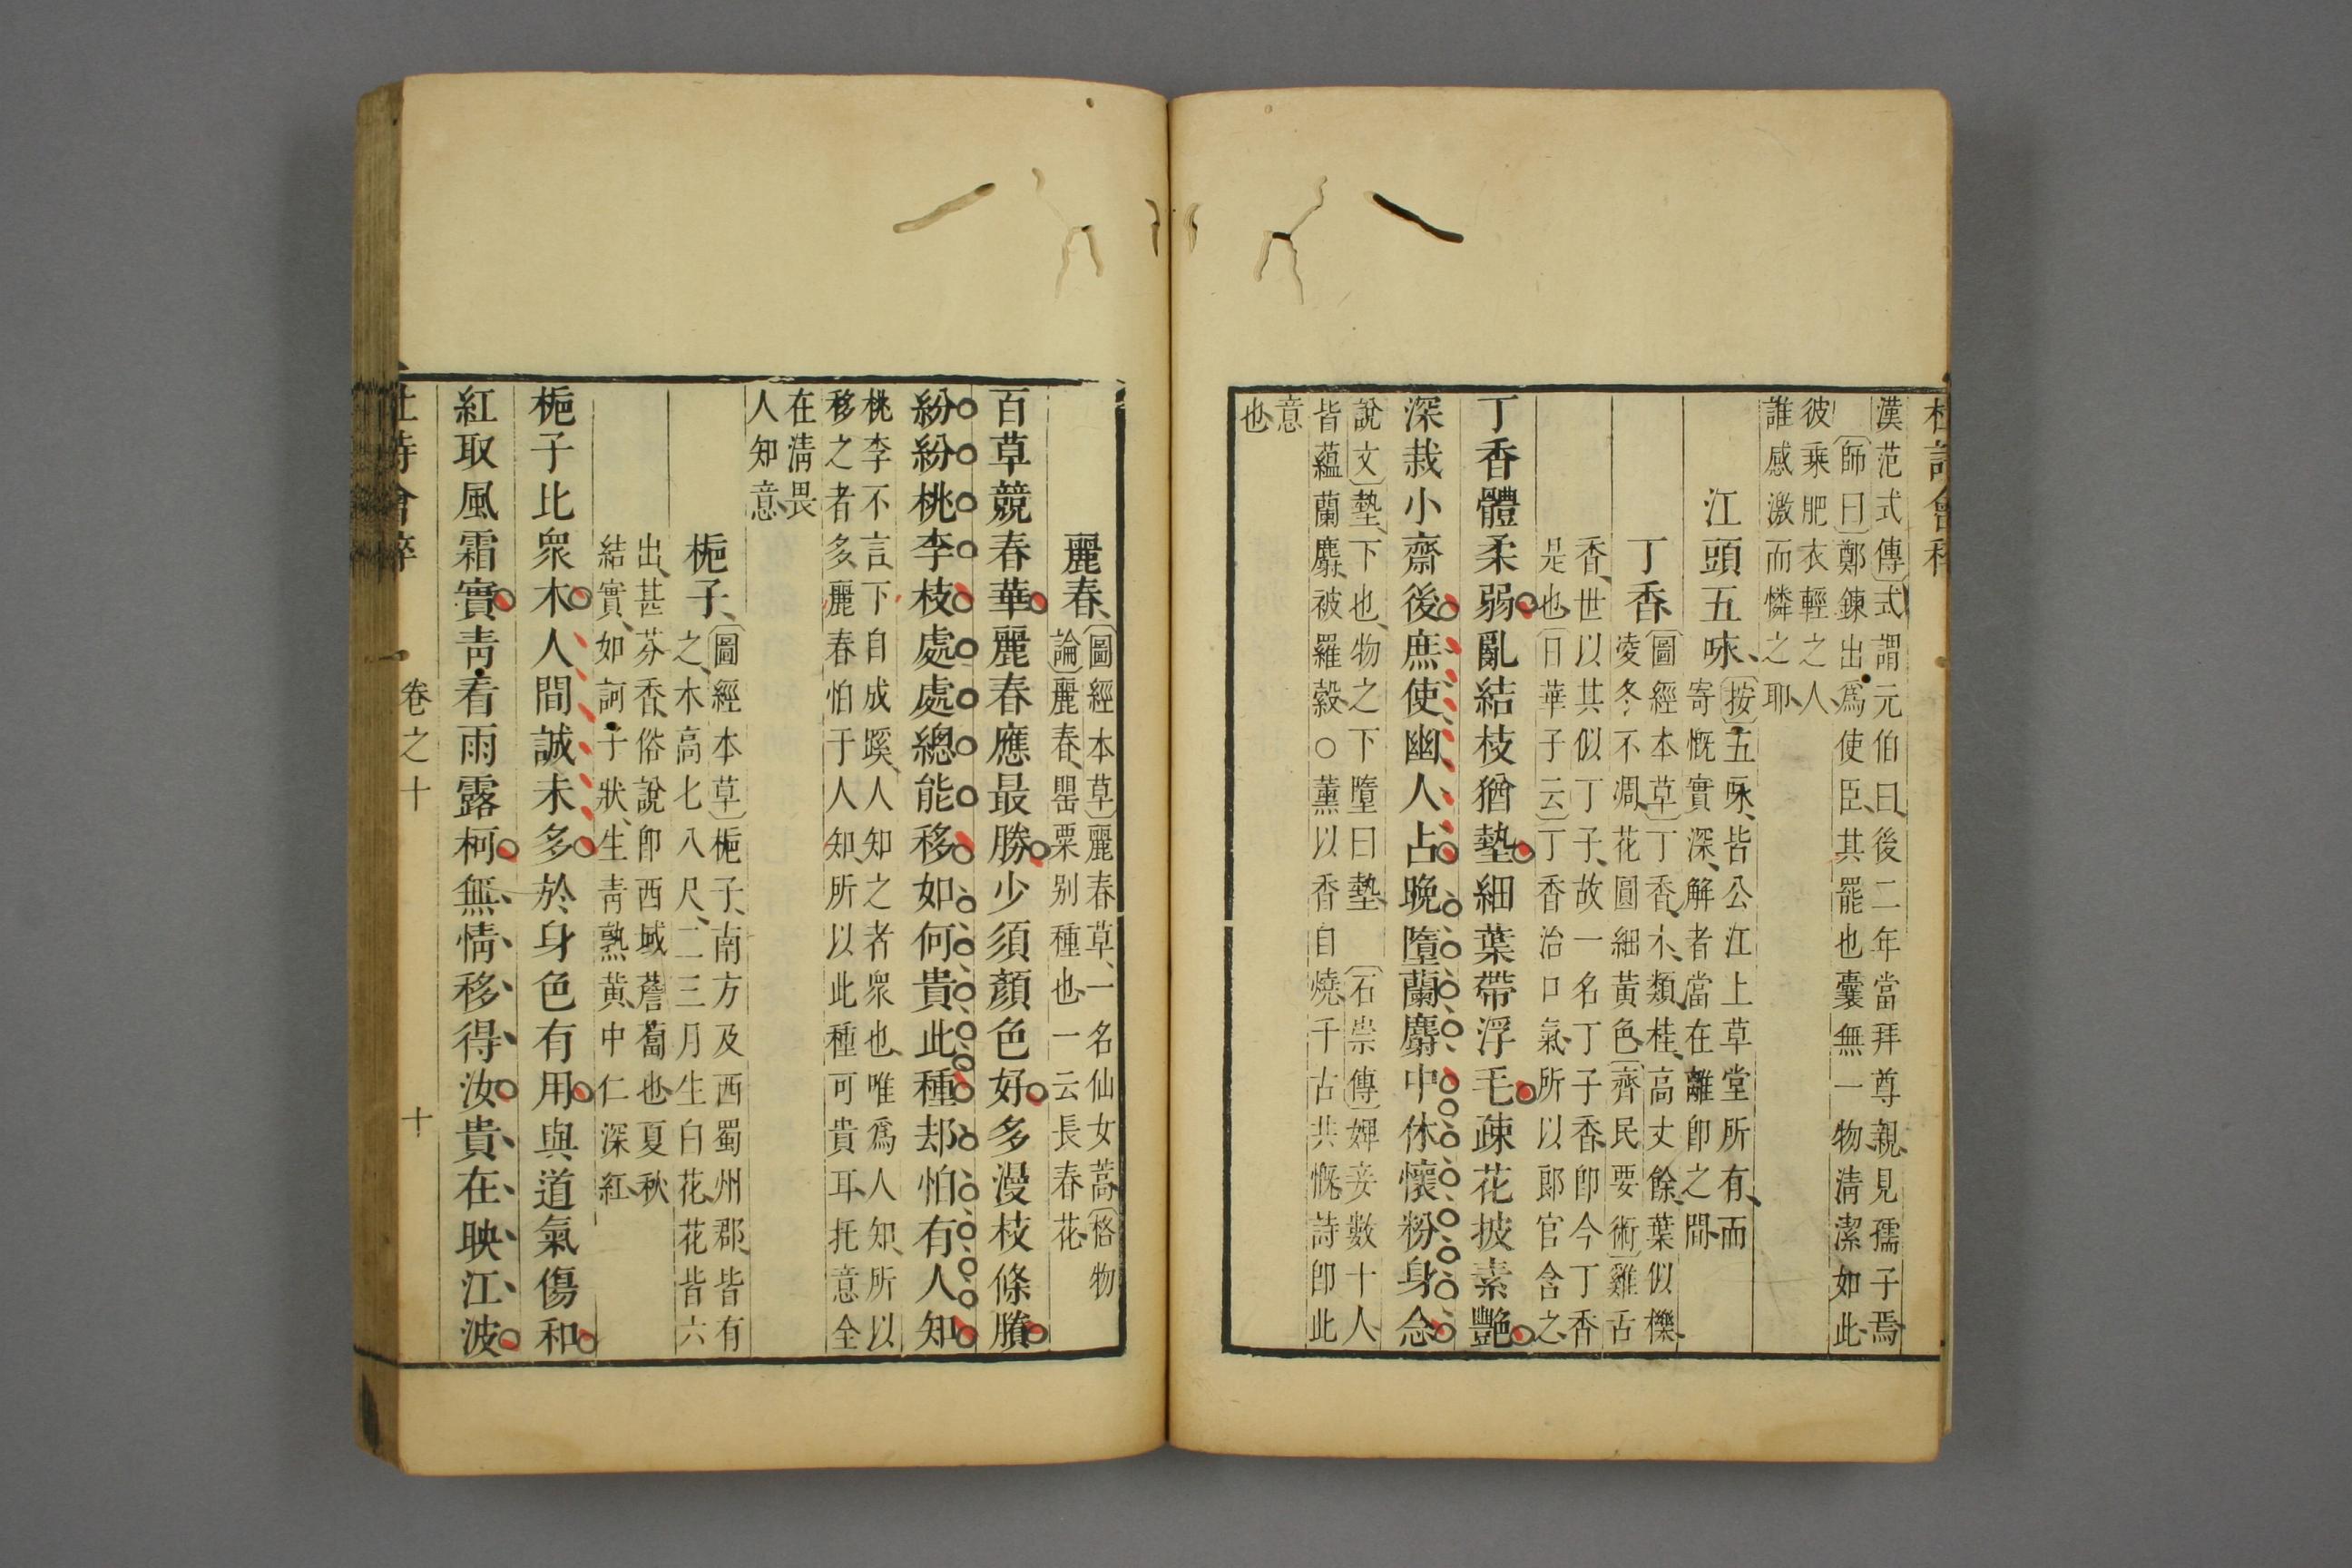 杜詩會稡
漢范式傳式謂元伯曰後二年當拜尊親見孺子焉
師曰鄭鍊出爲使臣其罷也囊無一物淸潔如此
彼乘肥衣輕之人
誰感激而憐之耶
江頭五咏
按五咏皆公江上草堂所有而
寄慨實深解者當在離卽之間
丁香
圖經本草丁香木類桂高丈餘葉似櫟
凌冬不凋花圓細黃色齊民要術雞舌
香世以其似丁子故一名丁子香卽今丁香
是也日華子云丁香治口氣所以郞官含之
丁香體柔弱亂結枝猶墊細葉帶浮毛疎花披素艷
深栽小齋後庶使幽人占晚墮蘭麝中休懷粉身念
說文墊下也物之下墮曰墊 石崇傳婢妾數十人
皆蘊蘭麝被羅縠○薰以香自燒千古共慨詩卽此
意
也
麗春
圖經本草麗春草一名仙女蒿格物
論麗春罌粟別種也一云長春花
百草競春華麗春應最勝少須顏色好多漫枝條賸
紛紛桃李枝處處總能移如何貴此種却怕有人知
桃李不言下自成蹊人知之者衆也唯爲人知所以
移之者多麗春怕于人知所以此種可貴耳托意全
在淸畏
人知意
梔子
圖經本草梔子南方及西蜀州郡皆有
之木高七八尺二三月生白花花皆六
出甚芬香俗說卽西域薝蔔也夏秋
結實如訶子狀生靑熟黃中仁深紅
梔子比衆木人間誠未多於身色有用與道氣傷和
紅取風霜實靑看雨露柯無情移得汝貴在映江波
杜詩會稡 卷之十 十